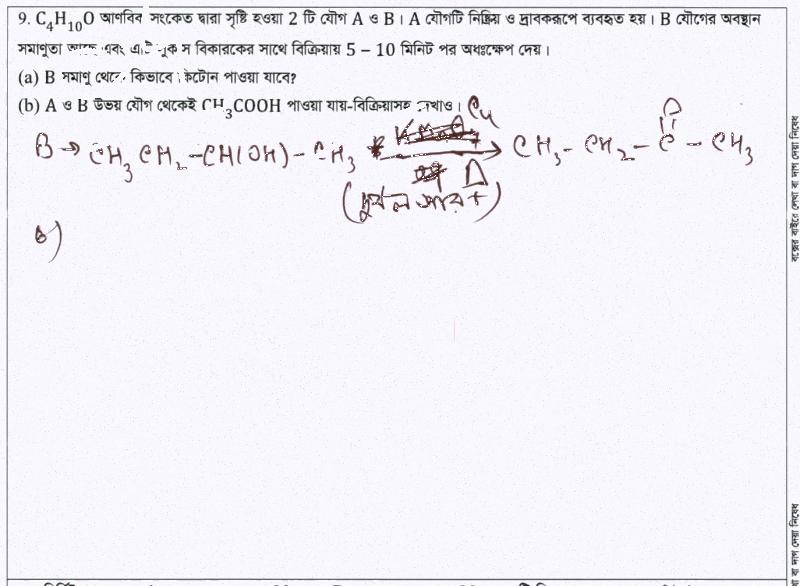 9. C₄H₁₀O আণবিক সংকেত দ্বারা সৃষ্টি হওয়া 2 টি যৌগ A ও B। A যৌগটি নিষ্ক্রিয় ও দ্রাবকরূপে ব্যবহৃত হয়। B যৌগের অবস্থান
সমাণুতা আছে এবং স বিকারকের সাথে বিক্রিয়ায় 5 – 10 মিনিট পর অধঃক্ষেপ দেয়।
(a) B সমাণু থেকে কিভাবে কিটোন পাওয়া যাবে?
(b) A ও B উভয় যৌগ থেকেই CH₃COOH পাওয়া যায়-বিক্রিয়াসহ দেখাও।
Cu
B → CH₃ CH₂ – CH(OH) – CH₃ → CH₃ – CH₂ – C – CH₃
O
Δ
b)
বক্সের বাইরে লেখা বা দাগ দেয়া নিষেধ
বা দাগ দেয়া নিষেধ